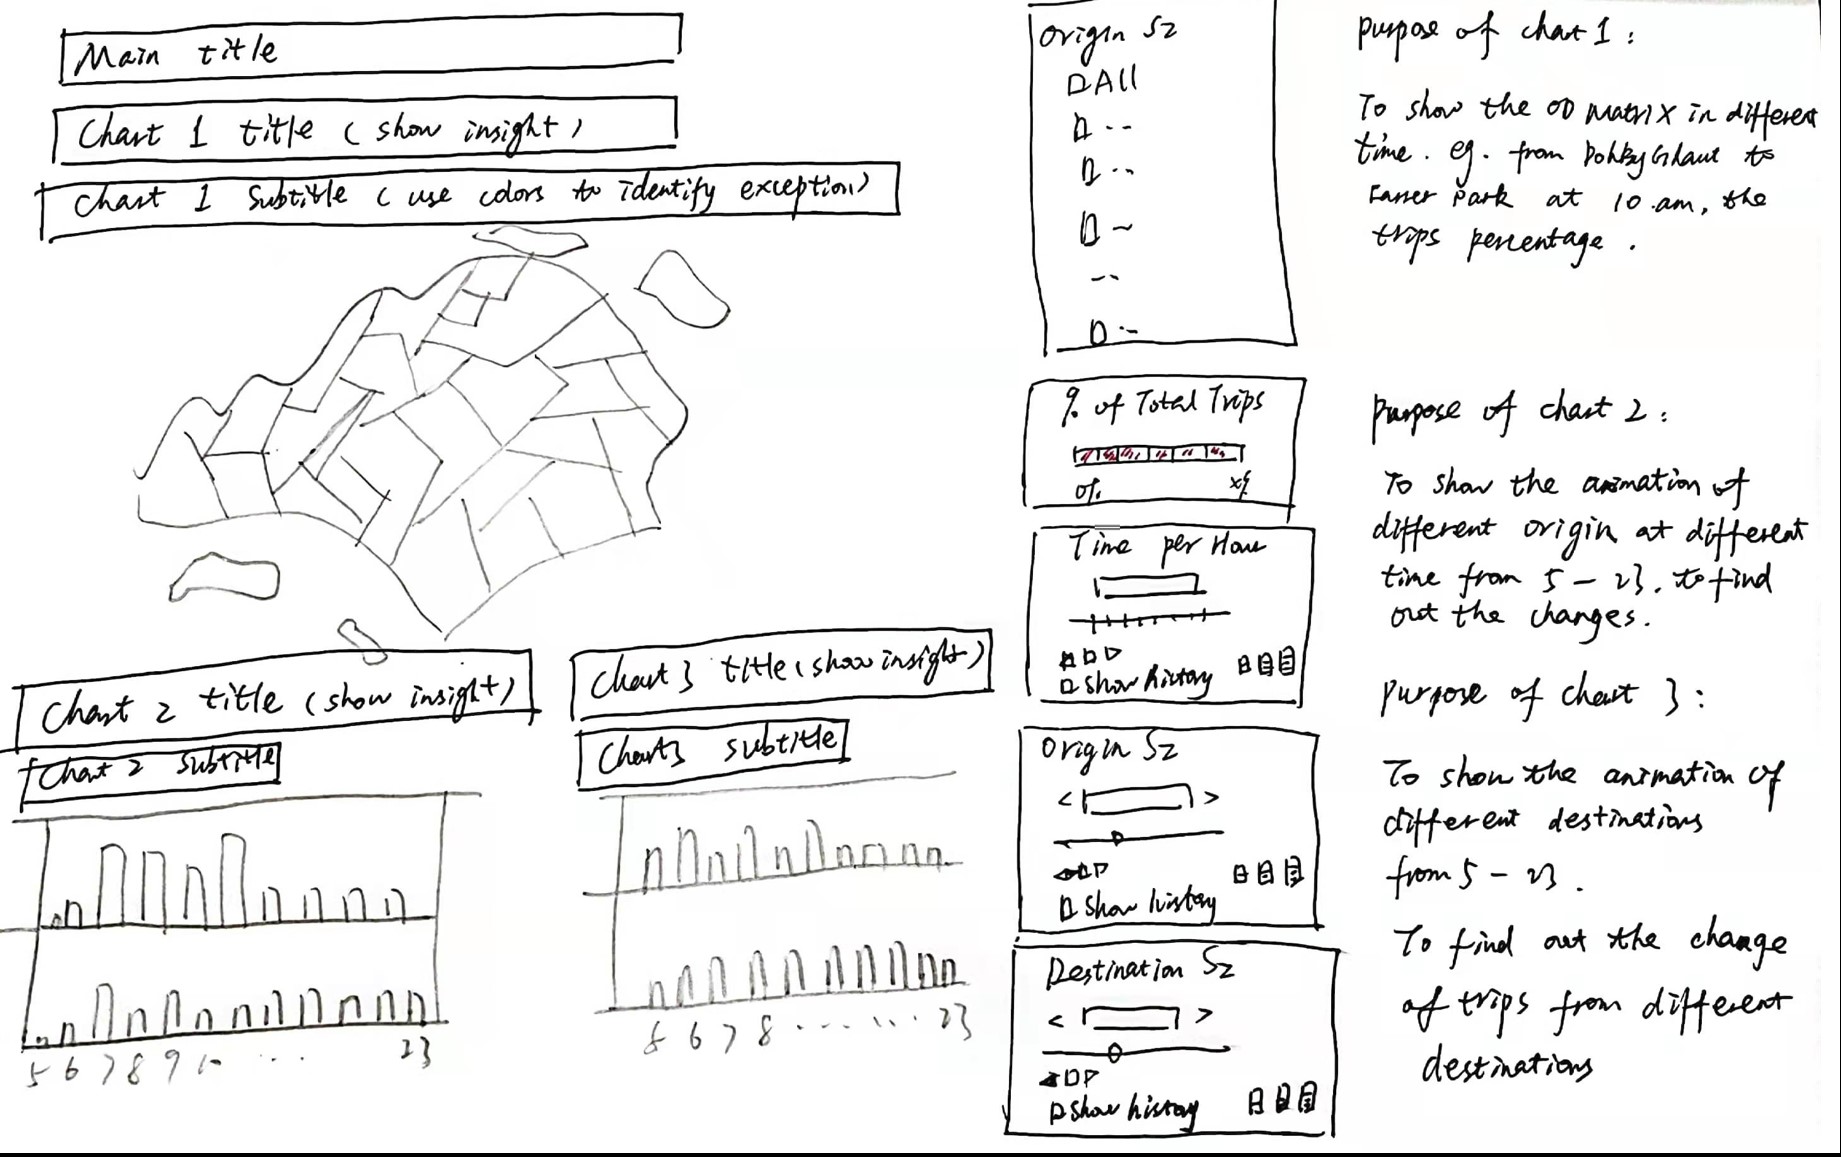 Main title
Chart 1 title ( show insight )
Chart 1 Subtitle ( use colors to identify exception)
Chart 2 title ( show insight )
Chart 2 subtitle
5 6 7 8 9 10 ...
23
Chart 3 title (show insight)
Chart3 subtitle
6 7 8 ... ... 23
Origin SZ
All
% of Total Trips
0%
x%
Time per Hour
Show history
Origin SZ
< >
Show history
Destination SZ
< >
Show history
Purpose of chart 1 :
To show the OD Matrix in different
time. eg. from Dohby Ghaut to
Farrer Park at 10.am, the
trips percentage .
Purpose of chart 2 :
To show the animation of
different origin at different
time from 5 - 23. to find
out the changes.
purpose of chart 3 :
To show the animation of
different destinations
from 5 - 23 .
To find out the change
of trips from different
destinations